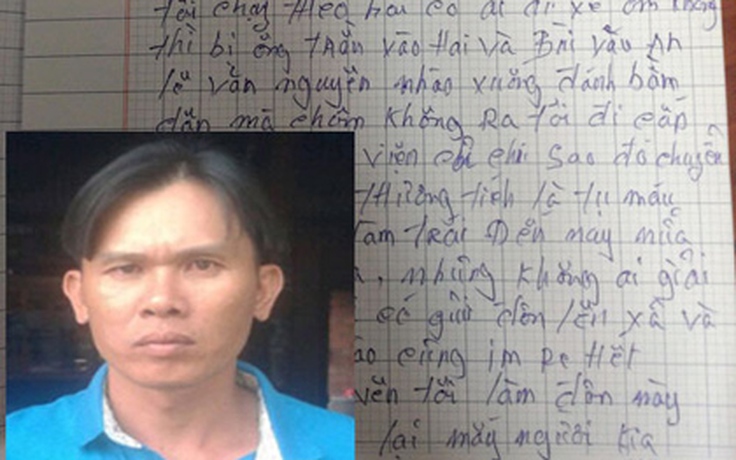 tôi chạy theo hai có ai đi xe ôm không
thì bị ông trần vào Hai và Bùi văn An
lê văn nguyên nhào xuống đánh bằm
dằn mà chôm không Ra tôi đi cấp
viện chi sao đó chuyển
thương tích là tụ máu
tâm trái Đến nay nữa
nhưng không ai giải
có gửi đơn lên xã và
cũng im Re Hết
tôi làm đơn này
lại mấy người kia